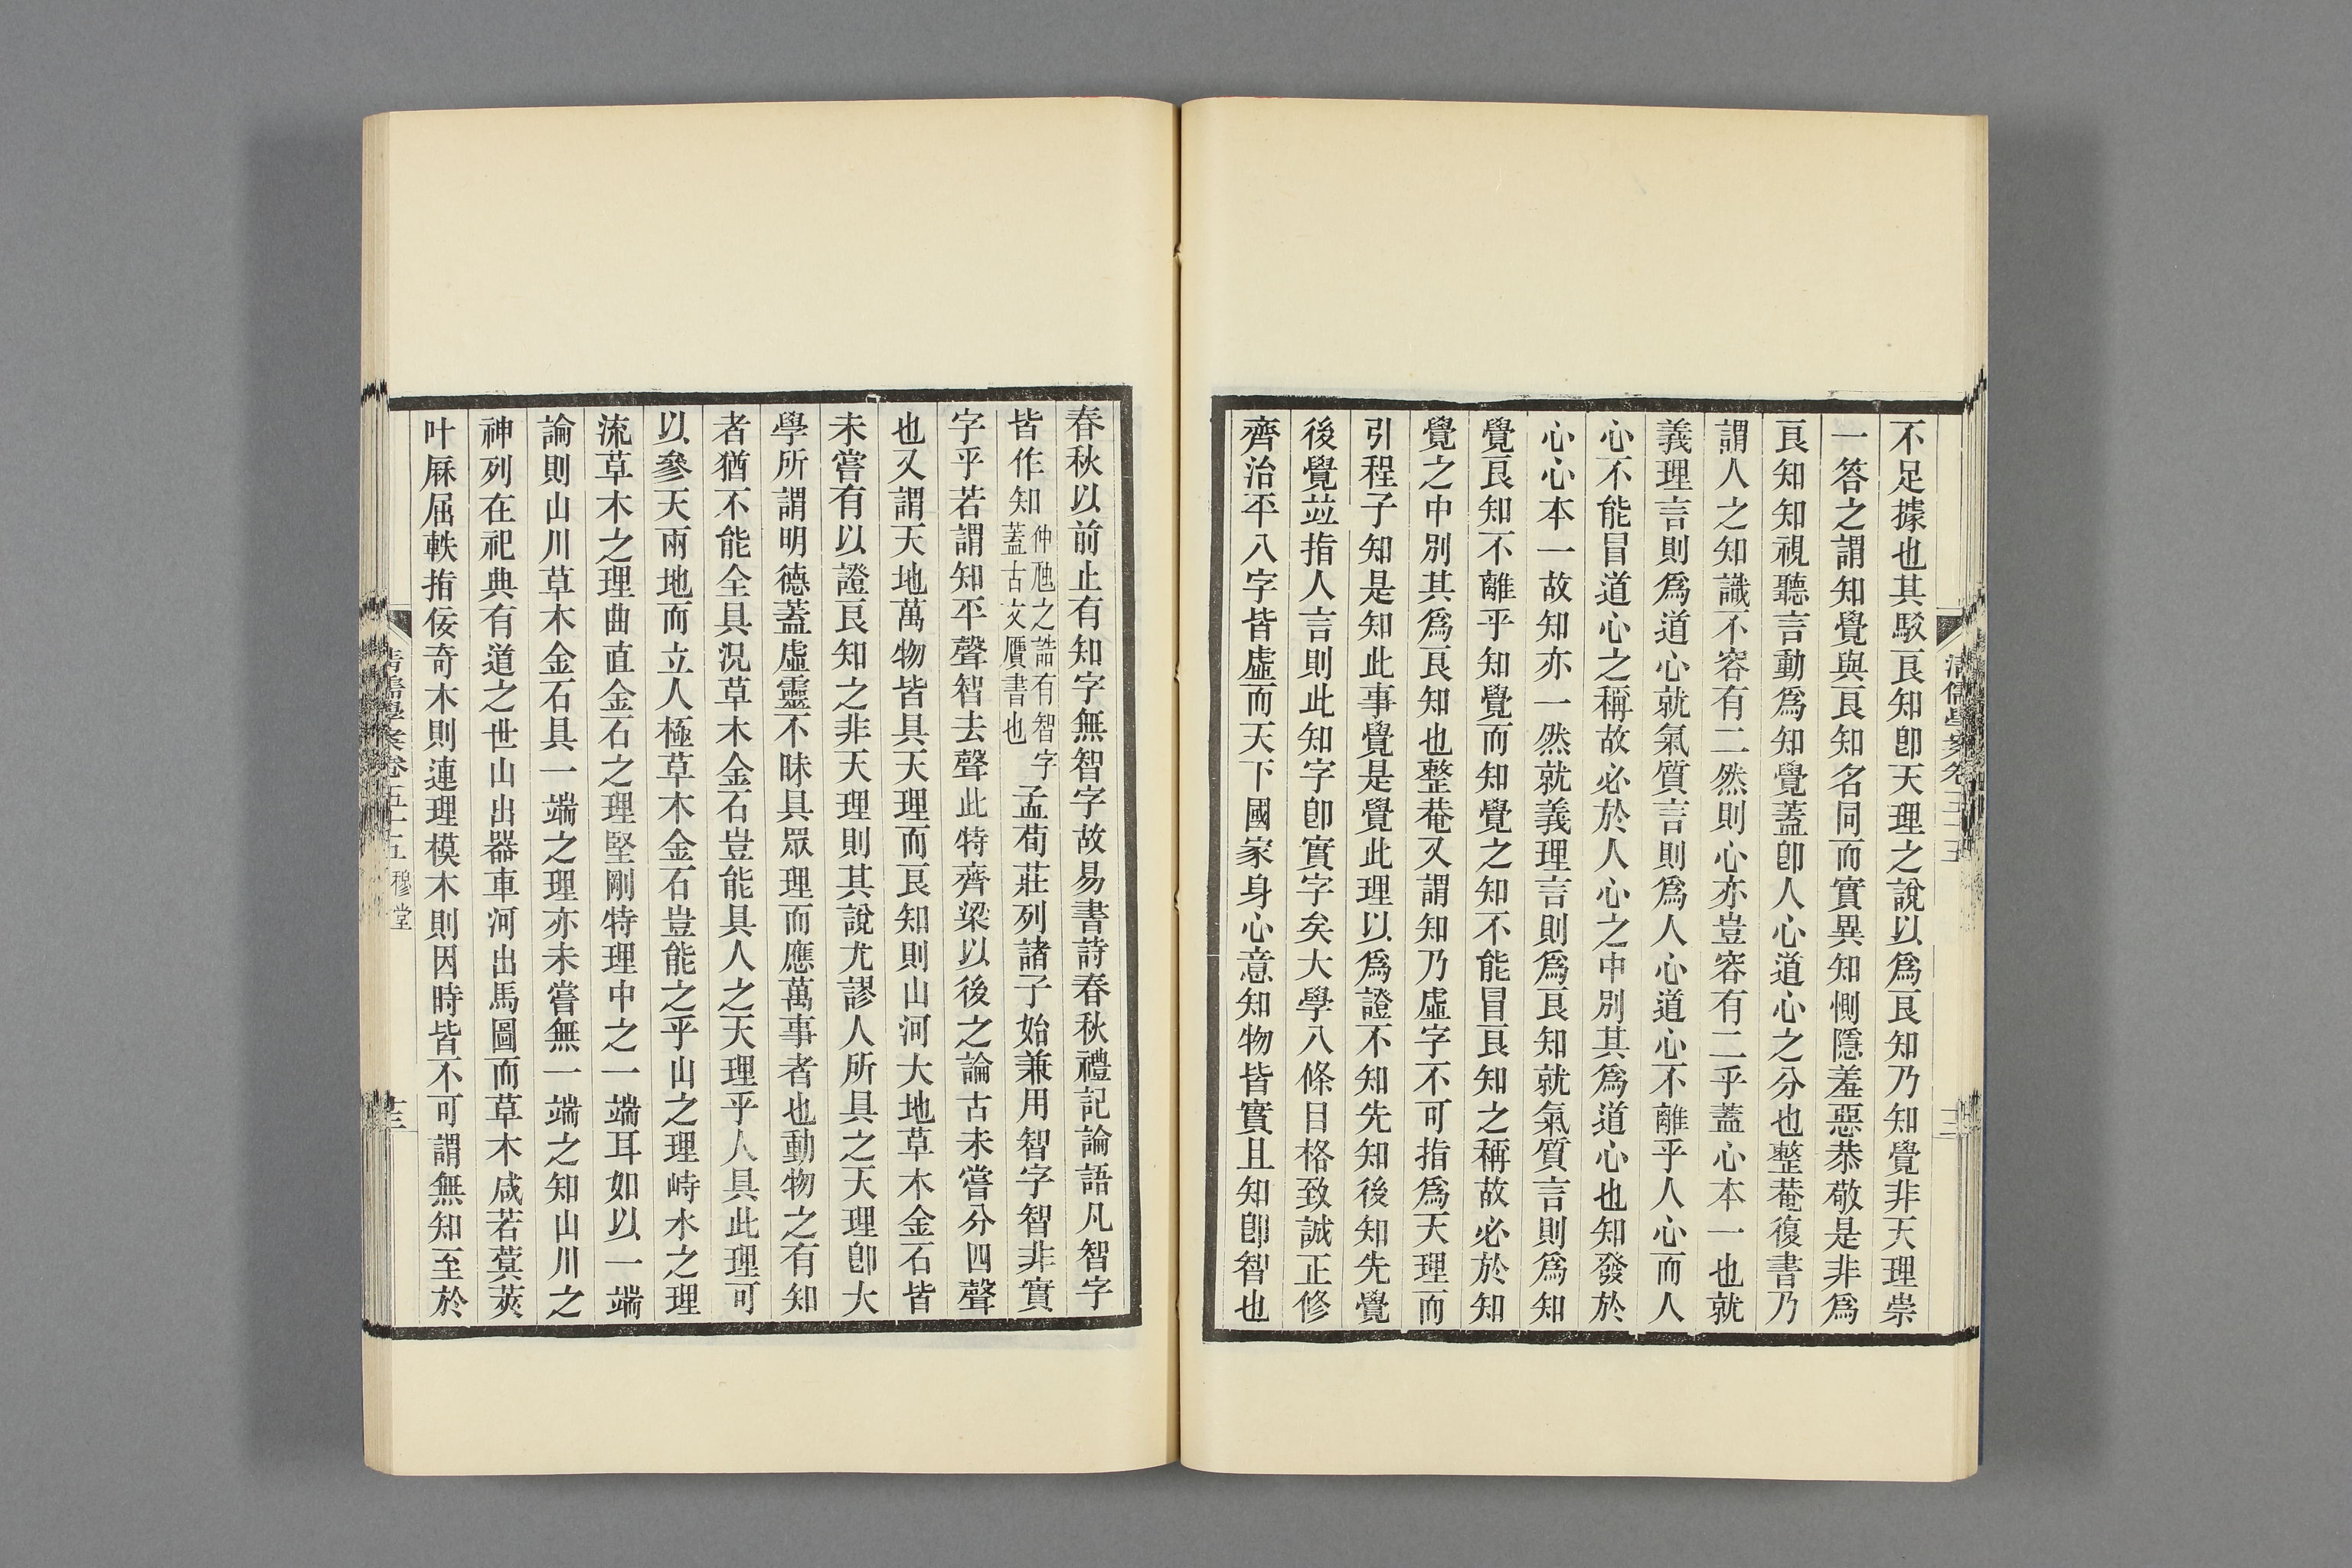 不足據也其駁良知卽天理之說以爲良知乃知覺非天理崇
一答之謂知覺與良知名同而實異知惻隱羞惡恭敬是非爲
良知知視聽言動爲知覺蓋卽人心道心之分也整菴復書乃
謂人之知識不容有二然則心亦豈容有二乎蓋心本一也就
義理言則爲道心就氣質言則爲人心道心不離乎人心而人
心不能冒道心之稱故必於人心之中別其爲道心也知發於
心心本一故知亦一然就義理言則爲良知就氣質言則爲知
覺良知不離乎知覺而知覺之知不能冒良知之稱故必於知
覺之中別其爲良知也整菴又謂知乃虛字不可指爲天理而
引程子知是知此事覺是覺此理以爲證不知先知後知先覺
後覺竝指人言則此知字卽實字矣大學八條目格致誠正修
齊治平八字皆虛而天下國家身心意知物皆實且知卽智也
清儒學案卷五十五
春秋以前止有知字無智字故易書詩春秋禮記論語凡智字
皆作知仲虺之誥有智字蓋古文贋書也孟荀莊列諸子始兼用智字智非實
字乎若謂知平聲智去聲此特齊梁以後之論古未嘗分四聲
也又謂天地萬物皆具天理而良知則山河大地草木金石皆
未嘗有以證良知之非天理則其說尤謬人所具之天理卽大
學所謂明德蓋虛靈不昧具眾理而應萬事者也動物之有知
者猶不能全具況草木金石豈能具人之天理乎人具此理可
以參天兩地而立人極草木金石豈能之乎山之理峙水之理
流草木之理曲直金石之理堅剛特理中之一端耳如以一端
論則山川草木金石具一端之理亦未嘗無一端之知山川之
神列在祀典有道之世山出器車河出馬圖而草木咸若蓂莢
叶厤屈軼指佞奇木則連理模木則因時皆不可謂無知至於
清儒學案卷五十五 穆堂
十三